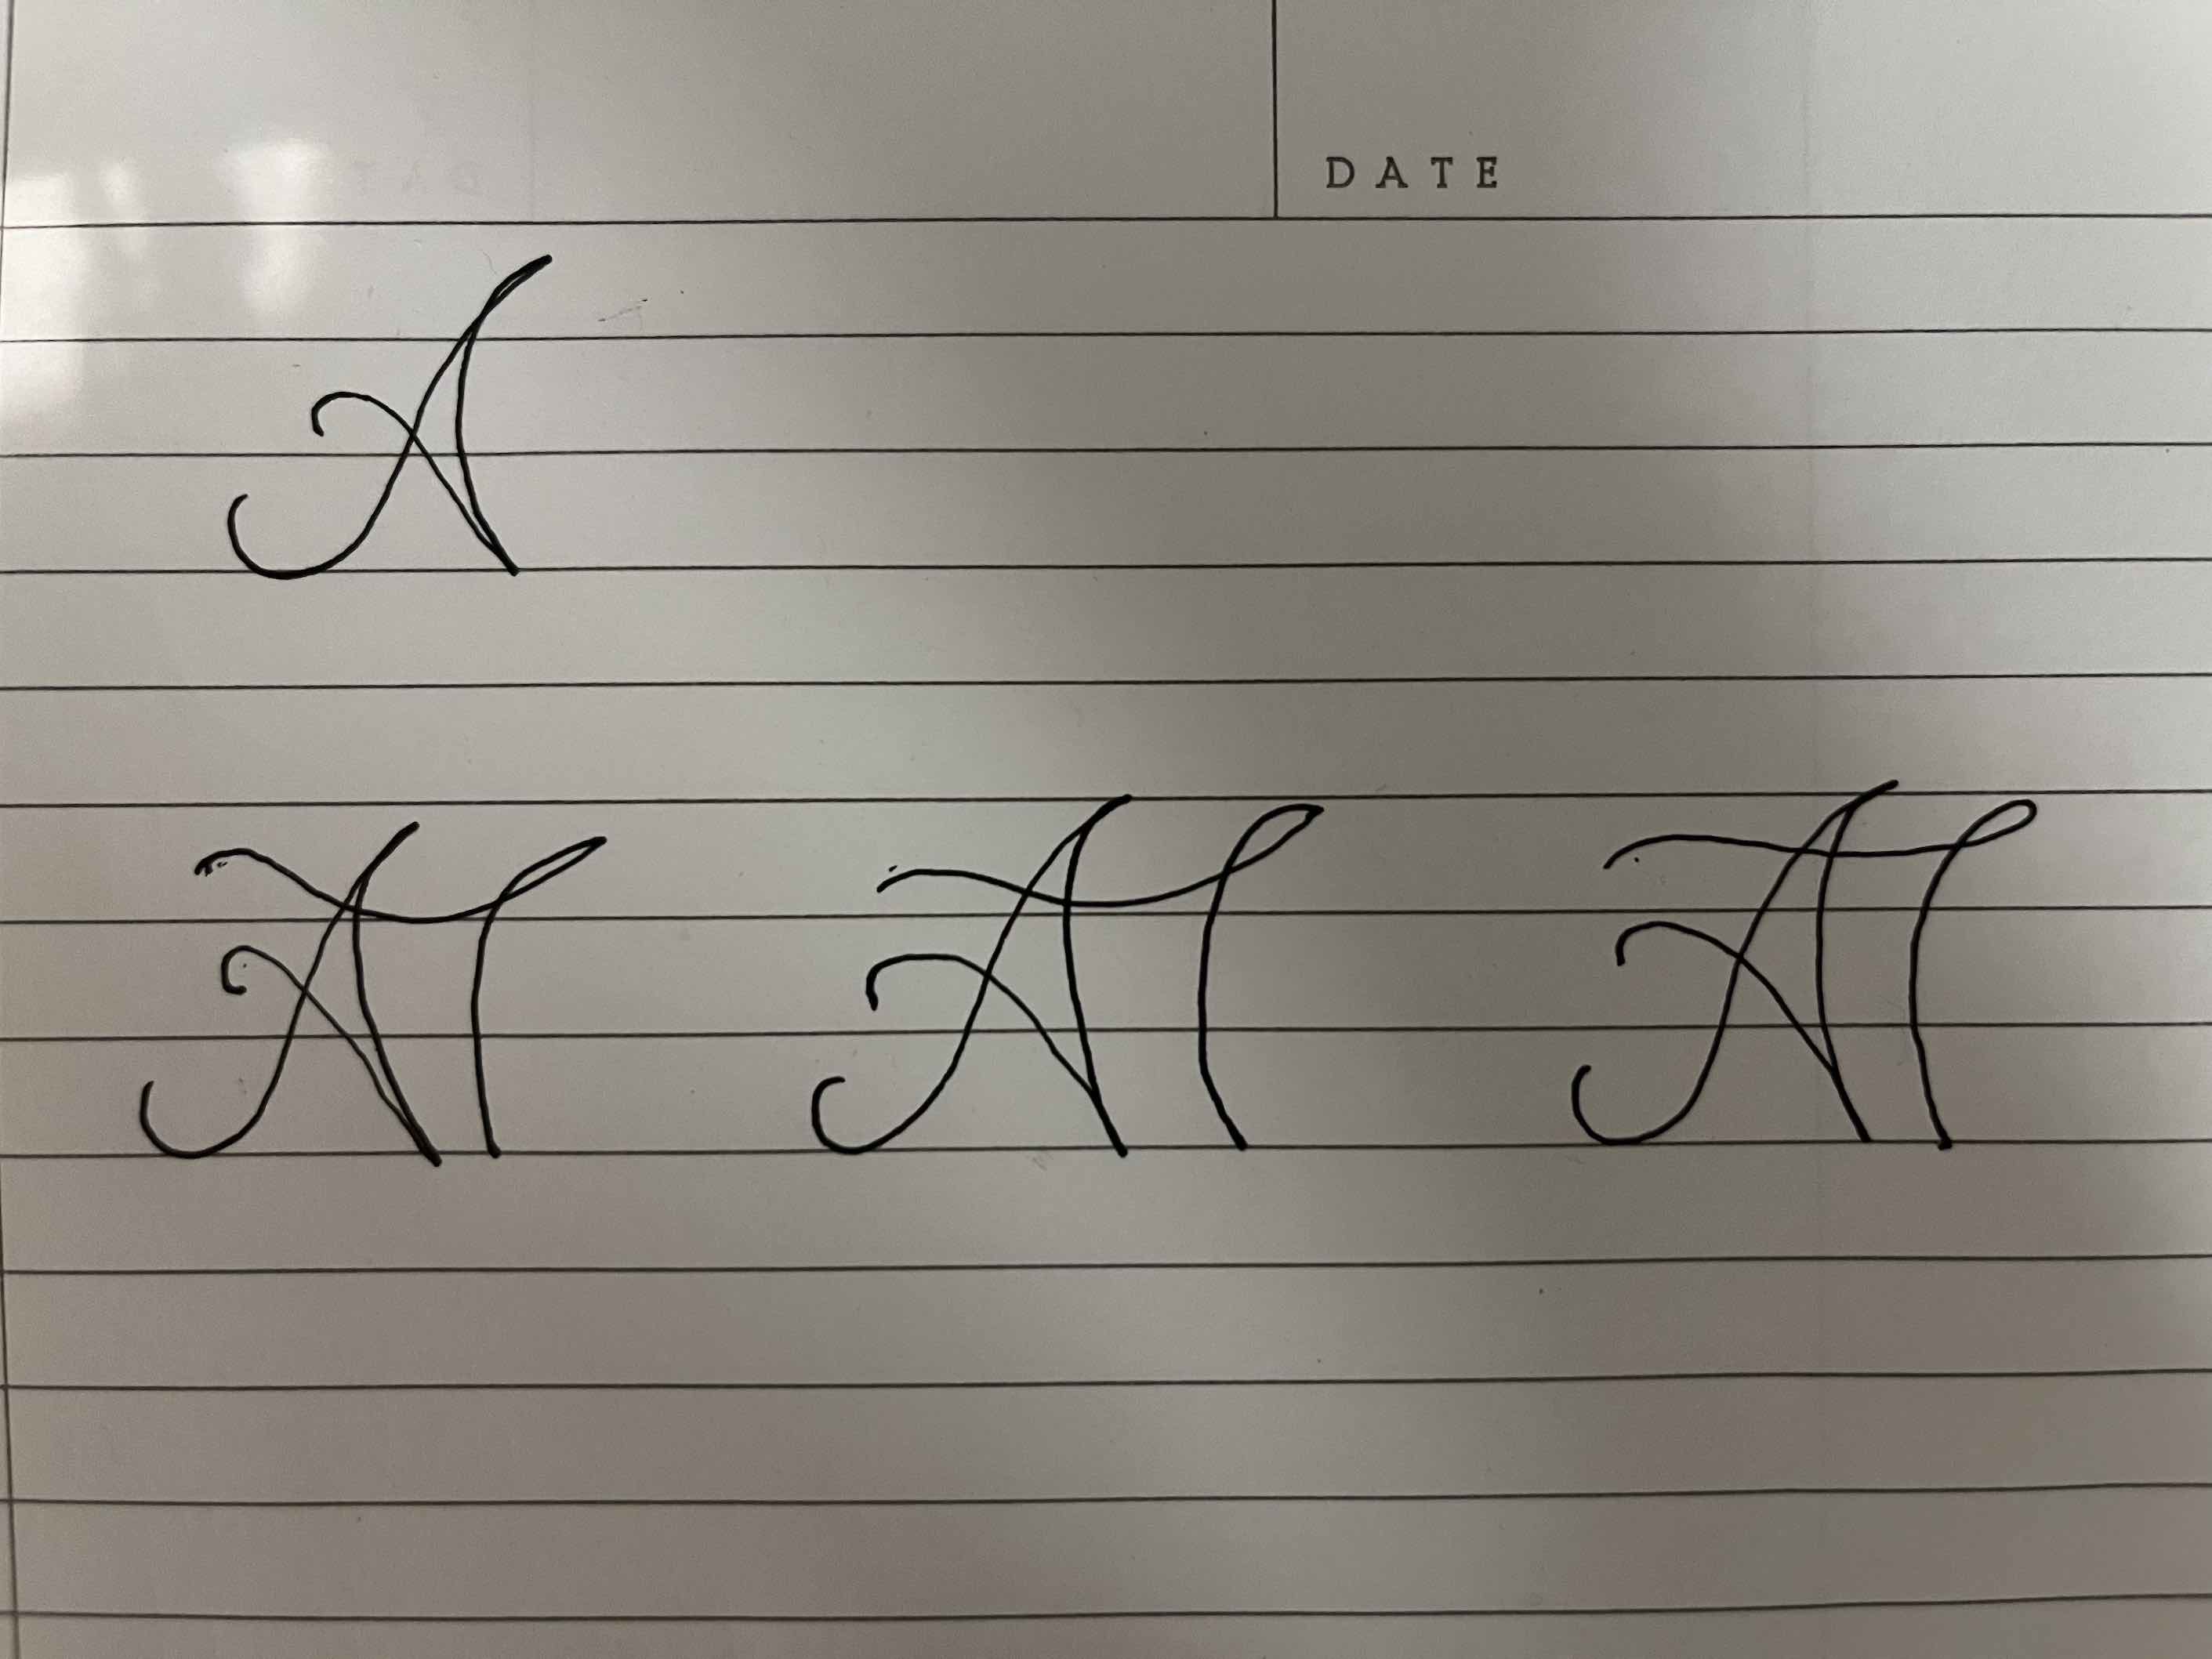 DATE
A
AT AT AT